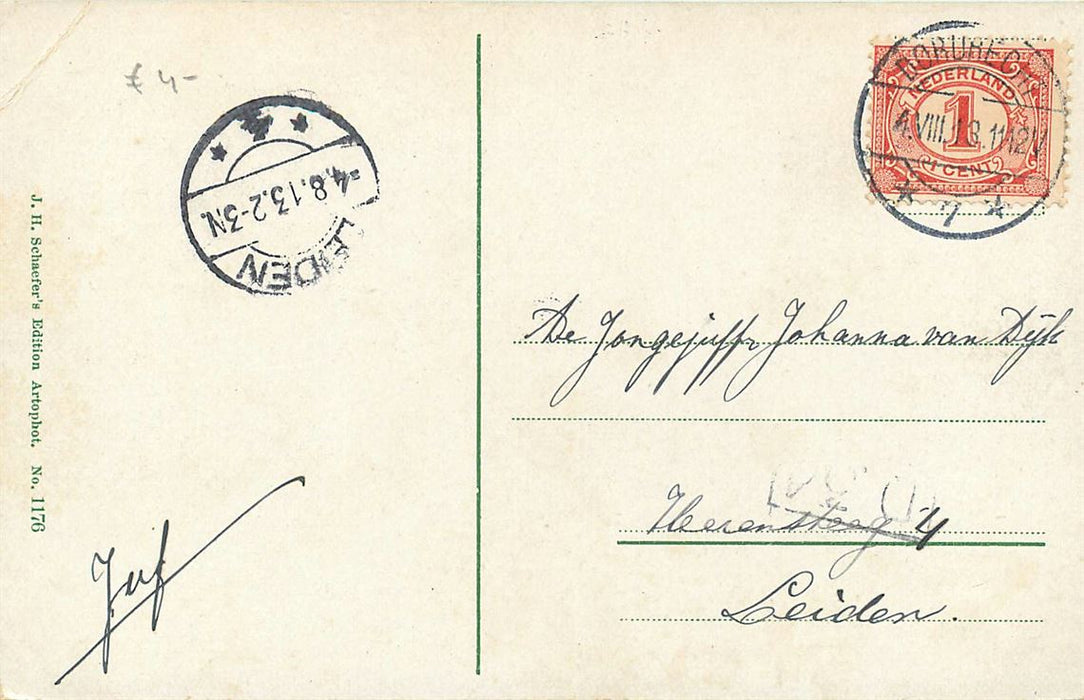 f 4-
-4.8.13.2-3N.
LEIDEN
J. H. Schaefer's Edition Artophot. No. 1176
DORDRECHT
4.VIII.13.11-12V
7
NEDERLAND
1
CENT
De Jongejuffr Johanna van Dijk
Heerensteeg 4
Leiden.